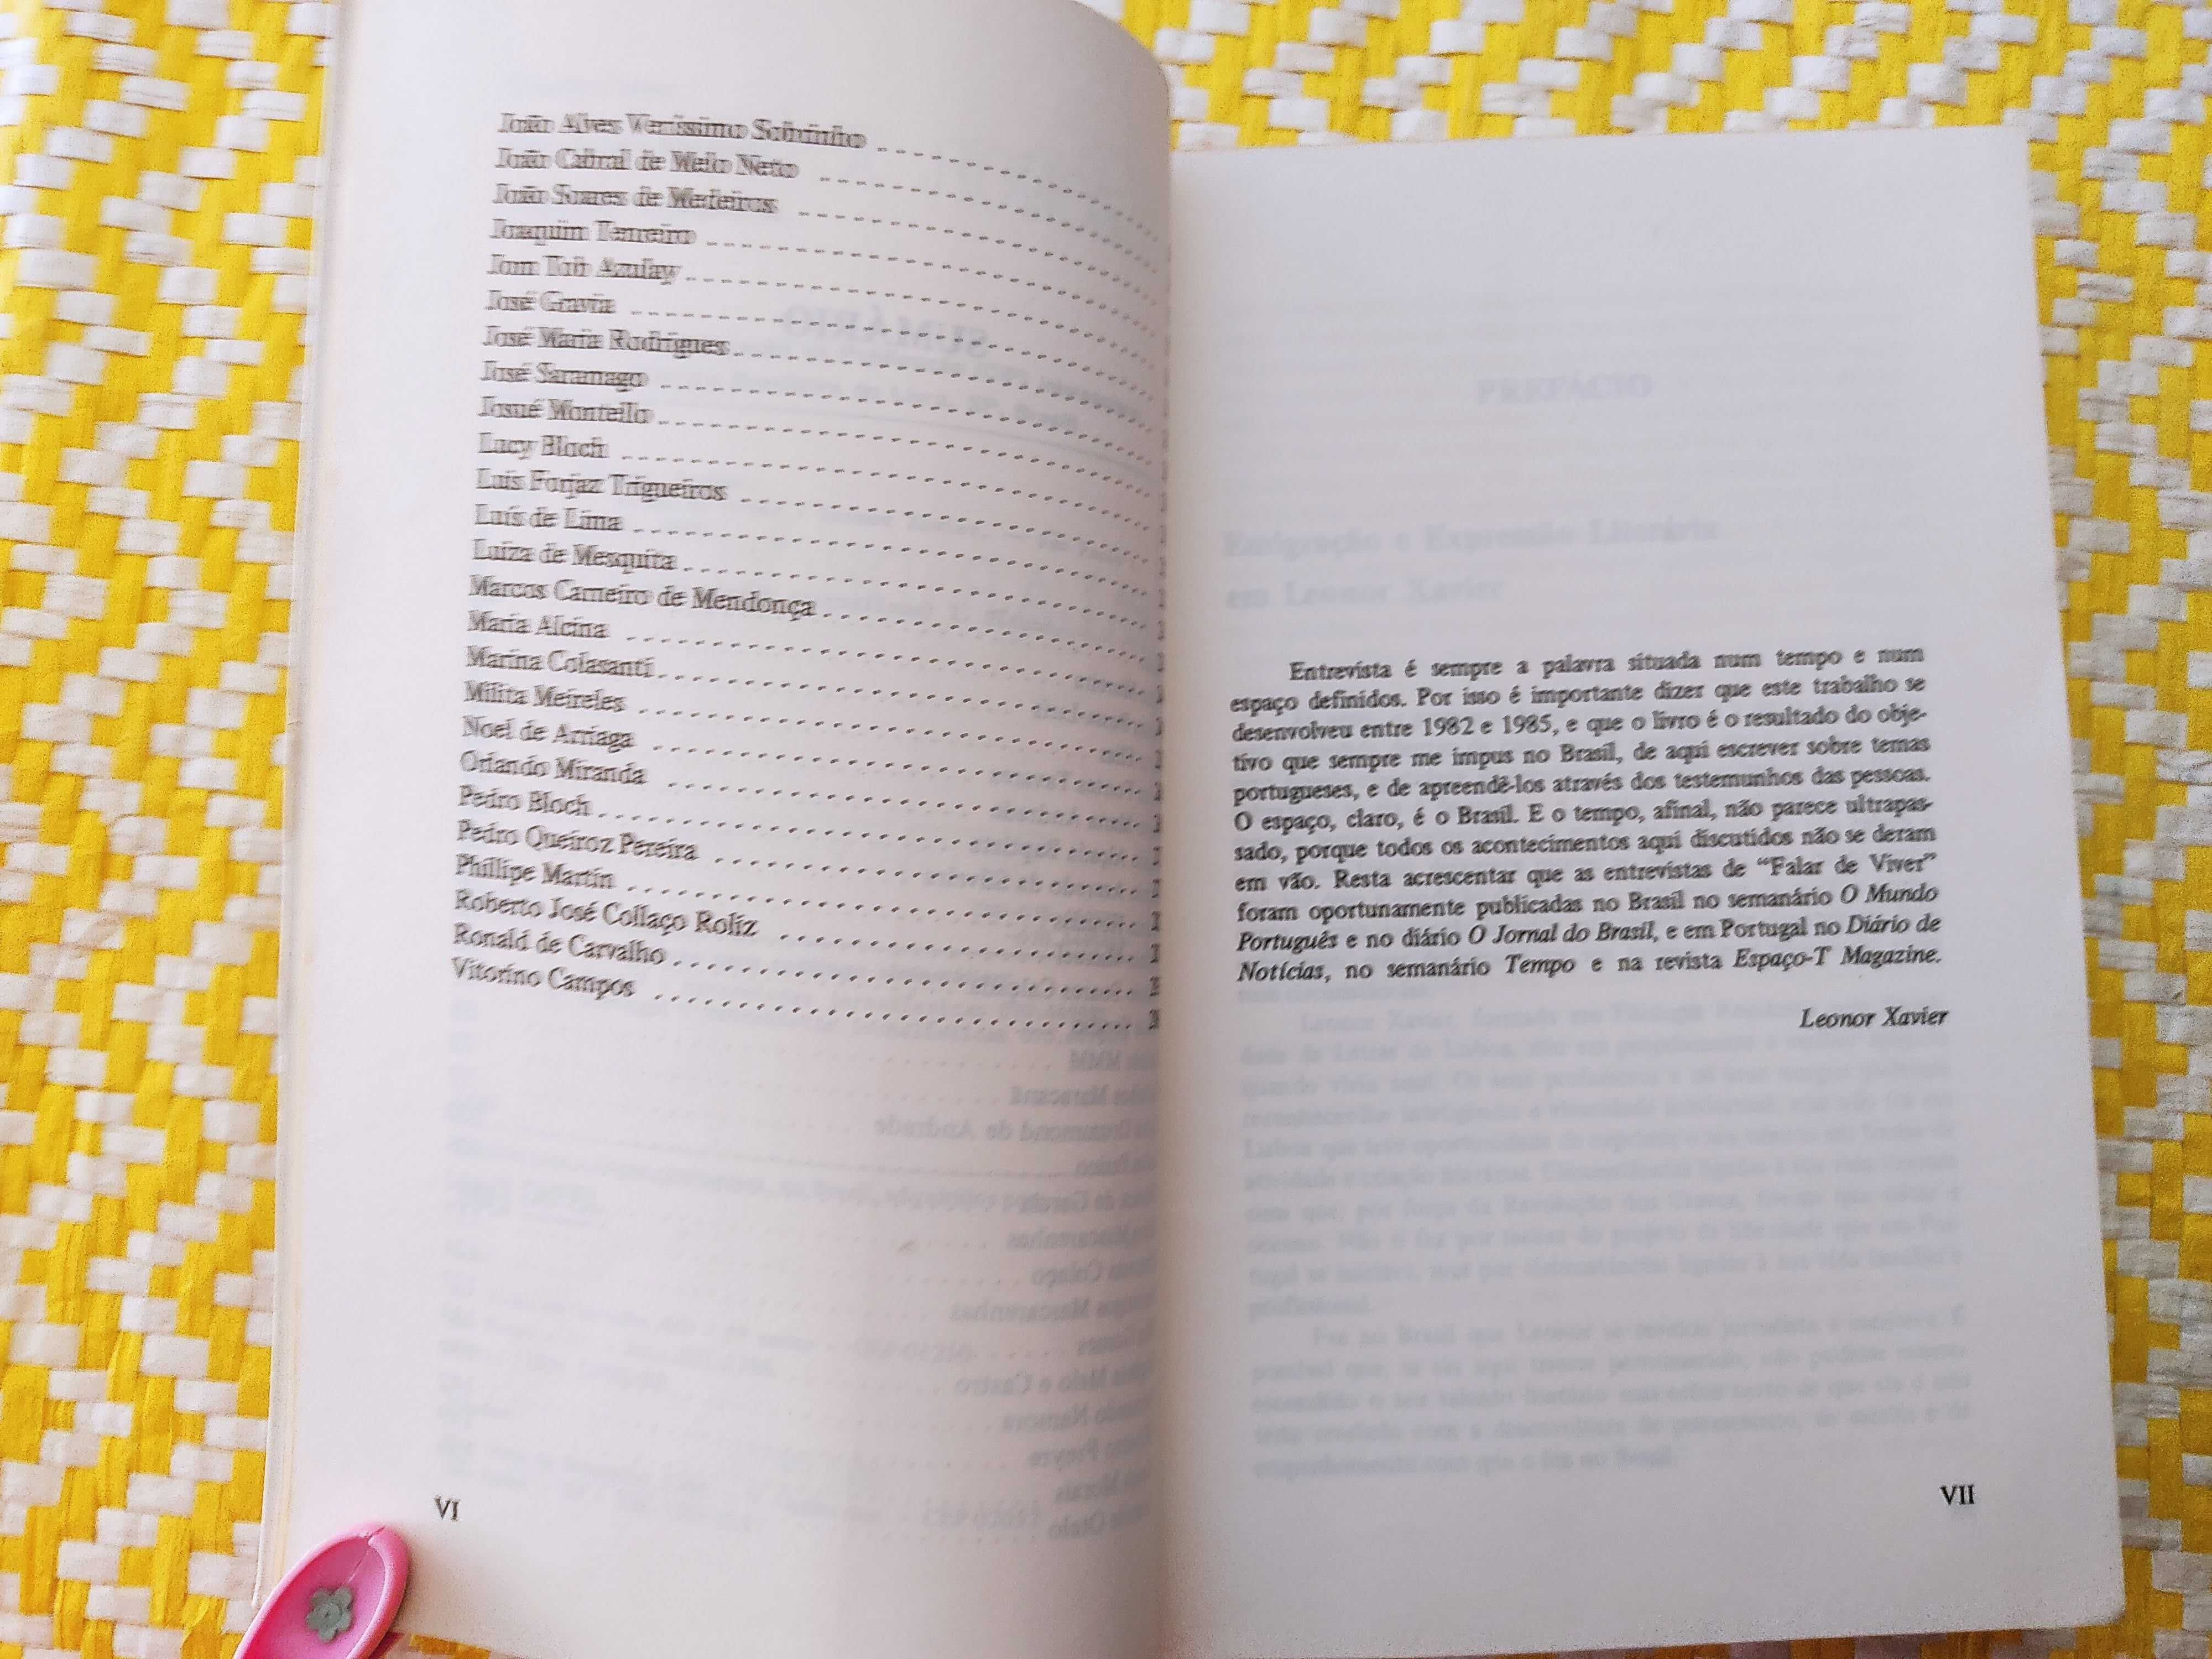 João Alves Veríssimo Sobrinho
João Cabral de Melo Neto
João Soares de Medeiros
Joaquim Tenreiro
Jom Tob Azulay
José Gravia
José Maria Rodrigues
José Saramago
Josué Montello
Lucy Bloch
Luís Forjaz Trigueiros
Luís de Lima
Luiza de Mesquita
Marcos Carneiro de Mendonça
Maria Alcina
Marina Colasanti
Milita Meireles
Noel de Arriaga
Orlando Miranda
Pedro Bloch
Pedro Queiroz Pereira
Phillipe Martin
Roberto José Collaço Roliz
Ronald de Carvalho
Vitorino Campos
VI
Entrevista é sempre a palavra situada num tempo e num
espaço definidos. Por isso é importante dizer que este trabalho se
desenvolveu entre 1982 e 1985, e que o livro é o resultado do obje-
tivo que sempre me impus no Brasil, de aqui escrever sobre temas
portugueses, e de apreendê-los através dos testemunhos das pessoas.
O espaço, claro, é o Brasil. E o tempo, afinal, não parece ultrapas-
sado, porque todos os acontecimentos aqui discutidos não se deram
em vão. Resta acrescentar que as entrevistas de “Falar de Viver”
foram oportunamente publicadas no Brasil no semanário O Mundo
Português e no diário O Jornal do Brasil, e em Portugal no Diário de
Notícias, no semanário Tempo e na revista Espaço-T Magazine.
Leonor Xavier
VII